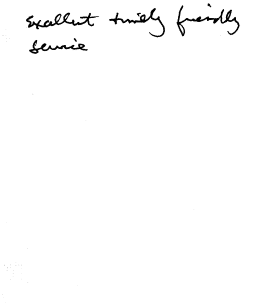 Excellent timely friendly
service